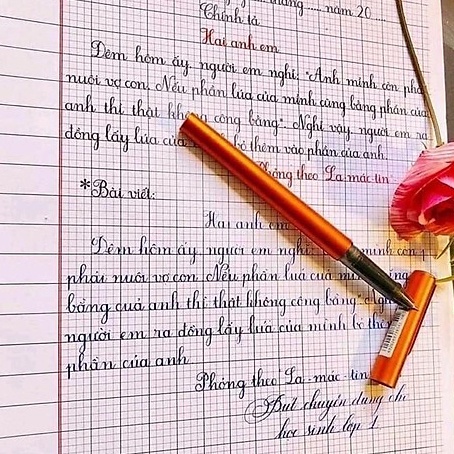 tháng...... năm 20....
Chính tả
Hai anh em
Đêm hôm ấy, người em nghĩ: "Anh mình còn phải
nuôi vợ con. Nếu phần lúa của mình cũng bằng phần của
anh thì thật không công bằng". Nghĩ vậy, người em ra
đồng lấy lúa của bỏ thêm vào phần của anh.
Phỏng theo La-mác-tin
*Bài viết:
Hai anh em
Đêm hôm ấy, người em nghĩ mình còn
phải nuôi vợ con. Nếu phần lúa của
bằng của anh thì thật không công bằng"
người em ra đồng lấy lúa của mình bỏ thêm
phần của anh
Phỏng theo La-mác-tin
Bút chuyên dùng cho
học sinh lớp 1